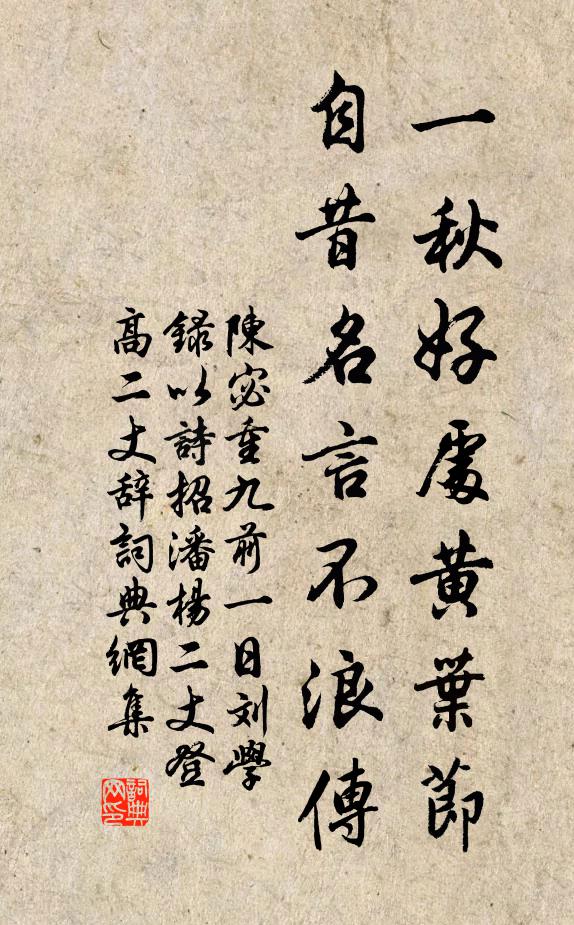 一秋好處黃葉節
自昔名言不浪傳
陳宓重九前一日刘學
錄以詩招潘楊二丈登
高二丈辞詞典網集
詞典
网印